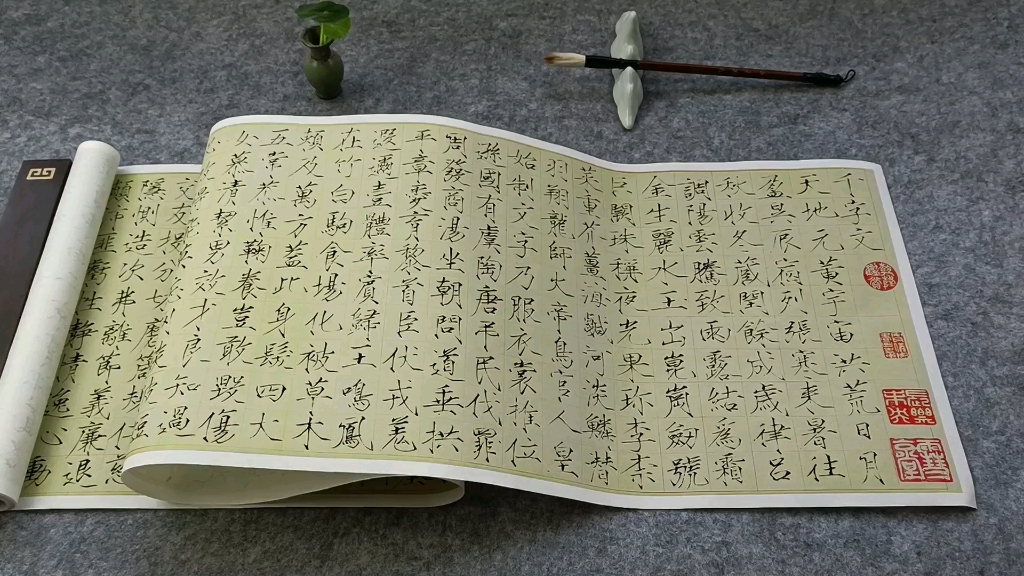 千字文
天地元黃宇宙洪荒日月
盈昃辰宿列張寒來暑往
秋收冬藏閏餘成歲律呂
調陽雲騰致雨露結爲霜
金生麗水玉出崑崗劒號
巨闕珠稱夜光果珍李柰
菜重芥薑海鹹河淡鱗潛
羽翔龍師火帝鳥官人皇
始制文字乃服衣裳推位
遜國有虞陶唐弔民伐罪
周發商湯坐朝問道垂拱
平章愛育黎首臣伏戎羌
遐邇壹體率賓歸王鳴鳳
在竹白駒食場化被草木
賴及萬方蓋此身髮四大
五常恭惟鞠養豈敢毀傷
女慕清絜男效才良知過
交友投分切磨箴規仁慈
隱惻造次弗離節義廉退
沛匪虧性靜情逸心動